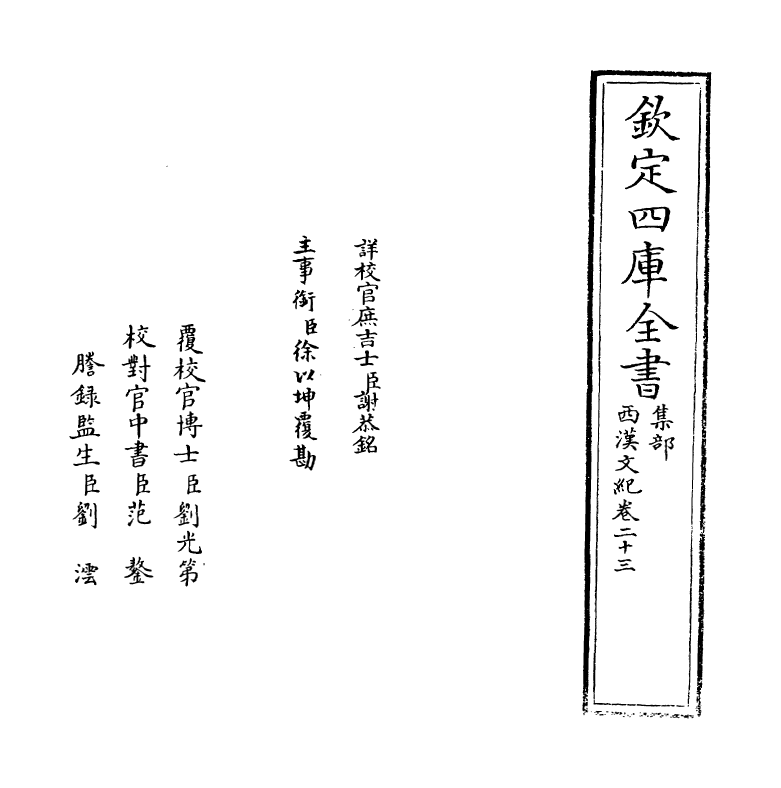 欽定四庫全書
集部
西漢文紀卷二十三
詳校官庶吉士臣謝恭銘
主事銜臣徐以坤覆勘
覆校官博士臣劉光第
校對官中書臣范鏊
謄録監生臣劉澐